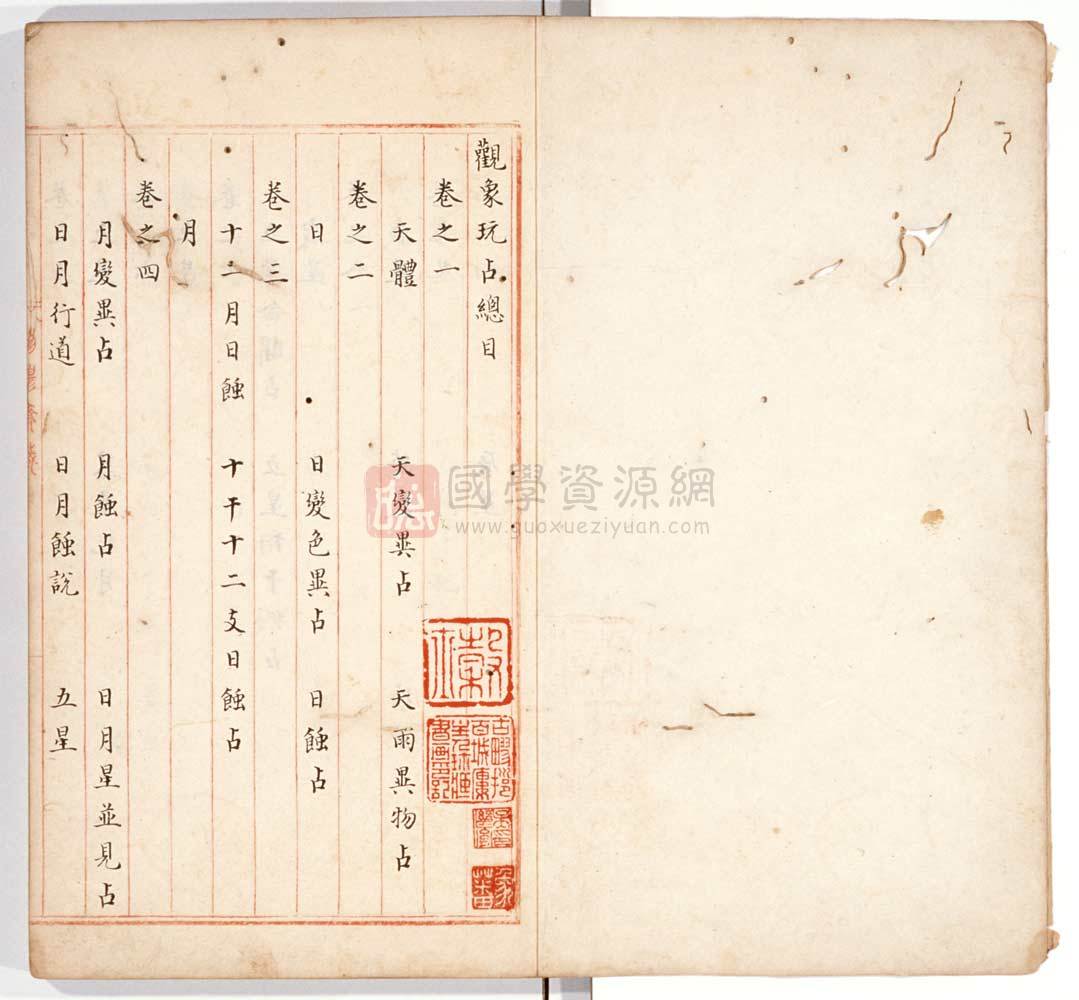 觀象玩占總目
卷之一
天體 天變異占 天雨異物占
卷之二
日 日變色異占 日蝕占
卷之三
十二月日蝕 十干十二支日蝕占
月
卷之四
月變異占 月蝕占 日月星並見占
日月行道 日月蝕說 五星
國學資源網
www.guoxueziyuan.com